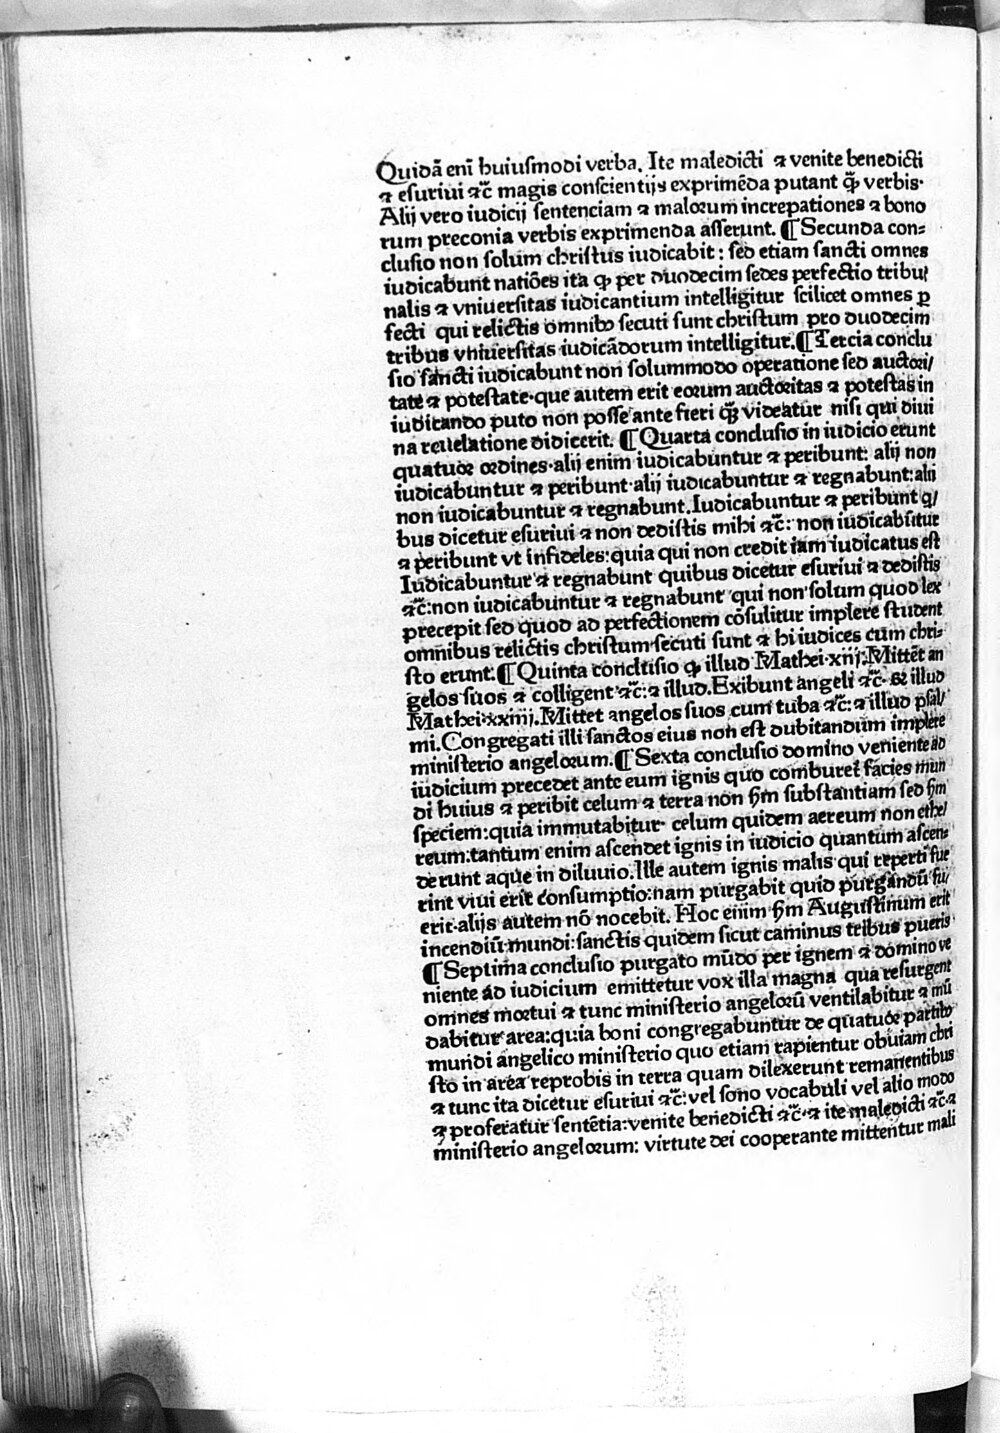 Quidã eni᷈ huiusmodi verba. Ite maledicti ⁊ venite benedicti
⁊ esuriui ⁊c̃ magis conscientijs exprimẽda putant ꝙ̃ verbis·
Alij vero iudicij sentenciam ⁊ malorum increpationes ⁊ bono
rum preconia verbis exprimenda asserunt. ¶ Secunda con⸗
clusio non solum christus iudicabit : sed etiam sancti omnes
iudicabunt natiões ita ꝙ per duodecim sedes perfectio tribu/
nalis ⁊ vniuersitas iudicantium intelligitur scilicet omnes ꝑ
fecti qui relictis omnibꝰ secuti sunt christum pro duodecim
tribus vniuersitas iudicãdorum intelligitur. ¶ Tercia conclu
sio sancti iudicabunt non solummodo operatione sed auctori/
tate ⁊ potestate·que autem erit eorum auctoritas ⁊ potestas in
iudicando puto non posse ante fieri ꝙ̃ videatur nisi qui diui
na reuelatione didicerit. ¶ Quarta conclusio in iudicio erunt
quatuor ordines·alij enim iudicabuntur ⁊ peribunt: alij non
iudicabuntur ⁊ peribunt·alij iudicabuntur ⁊ regnabunt:alii
non iudicabuntur ⁊ regnabunt. Iudicabuntur ⁊ peribunt q/
bus dicetur esuriui ⁊ non dedistis mihi ⁊c̃: non iudicabũtur
⁊ peribunt vt infideles:quia qui non credit iam iudicatus est
Iudicabuntur ⁊ regnabunt quibus dicetur esuriui ⁊ dedistis
⁊c̃:non iudicabuntur ⁊ regnabunt qui non solum quod lex
precepit sed quod ad perfectionem cõsulitur implere student
omnibus relictis christum secuti sunt ⁊ hi iudices cum chri⸗
sto erunt. ¶ Quinta conclusio ꝙ illud Mathei·xiij. Mittẽt an
gelos suos ⁊ colligent ⁊c̃:⁊ illud. Exibunt angeli ⁊c̃· ⁊ illud
Mathei·xxiiij. Mittet angelos suos cum tuba ⁊c̃:⁊ illud psal/
mi. Congregati illi sanctos eius non est dubitandum implere
ministerio angelorum. ¶ Sexta conclusio domino veniente ad
iudicium precedet ante eum ignis quo comburet᷈ facies mun
di huius ⁊ peribit celum ⁊ terra non s̃m substantiam sed s̃m
speciem:quia immutabitur· celum quidem aereum non ethe/
reum:tantum enim ascendet ignis in iudicio quantum ascen⸗
derunt aque in diluuio. Ille autem ignis malis qui reperti fue
rint viui erit consumptio:nam purgabit quid purgandũ fu/
erit·alijs autem nõ nocebit. Hoc enim s̃m Augustinum erit
incendiũ mundi:sanctis quidem sicut caminus tribus pueris
¶ Septima conclusio purgato mũdo per ignem ⁊ domino ve
niente ad iudicium emittetur vox illa magna qua resurgent
omnes mortui ⁊ tunc ministerio angelorũ ventilabitur ⁊ mũ
dabitur area:quia boni congregabuntur de quatuor partibꝰ
mundi angelico ministerio quo etiam rapientur obuiam chri
sto in area reprobis in terra quam dilexerunt remanentibus
⁊ tunc ita dicetur esuriui ⁊c̃: vel sono vocabuli vel alio modo
⁊ proferatur sentẽtia:venite benedicti ⁊c̃·⁊ ite maledicti ⁊c̃·⁊
ministerio angelorum: virtute dei cooperante mittentur mali